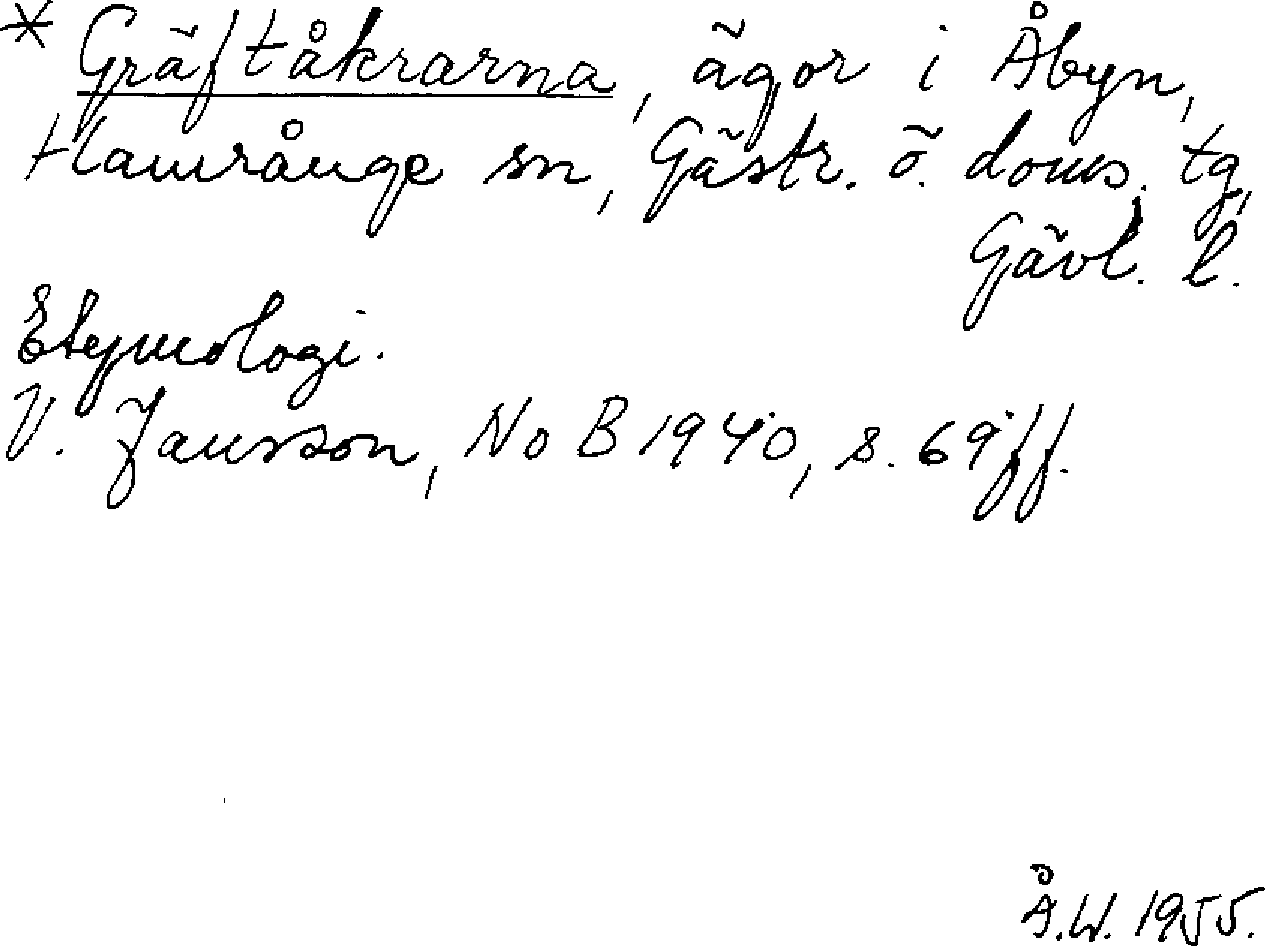 * Gräftåkrarna, ägor i Åbyn,
Hamrånge sn, Gästr. ö. doms. tg,
Gävl. l.
Etymologi.
V. Jansson, NoB 1940, s. 69 ff.
Å.W. 1955.